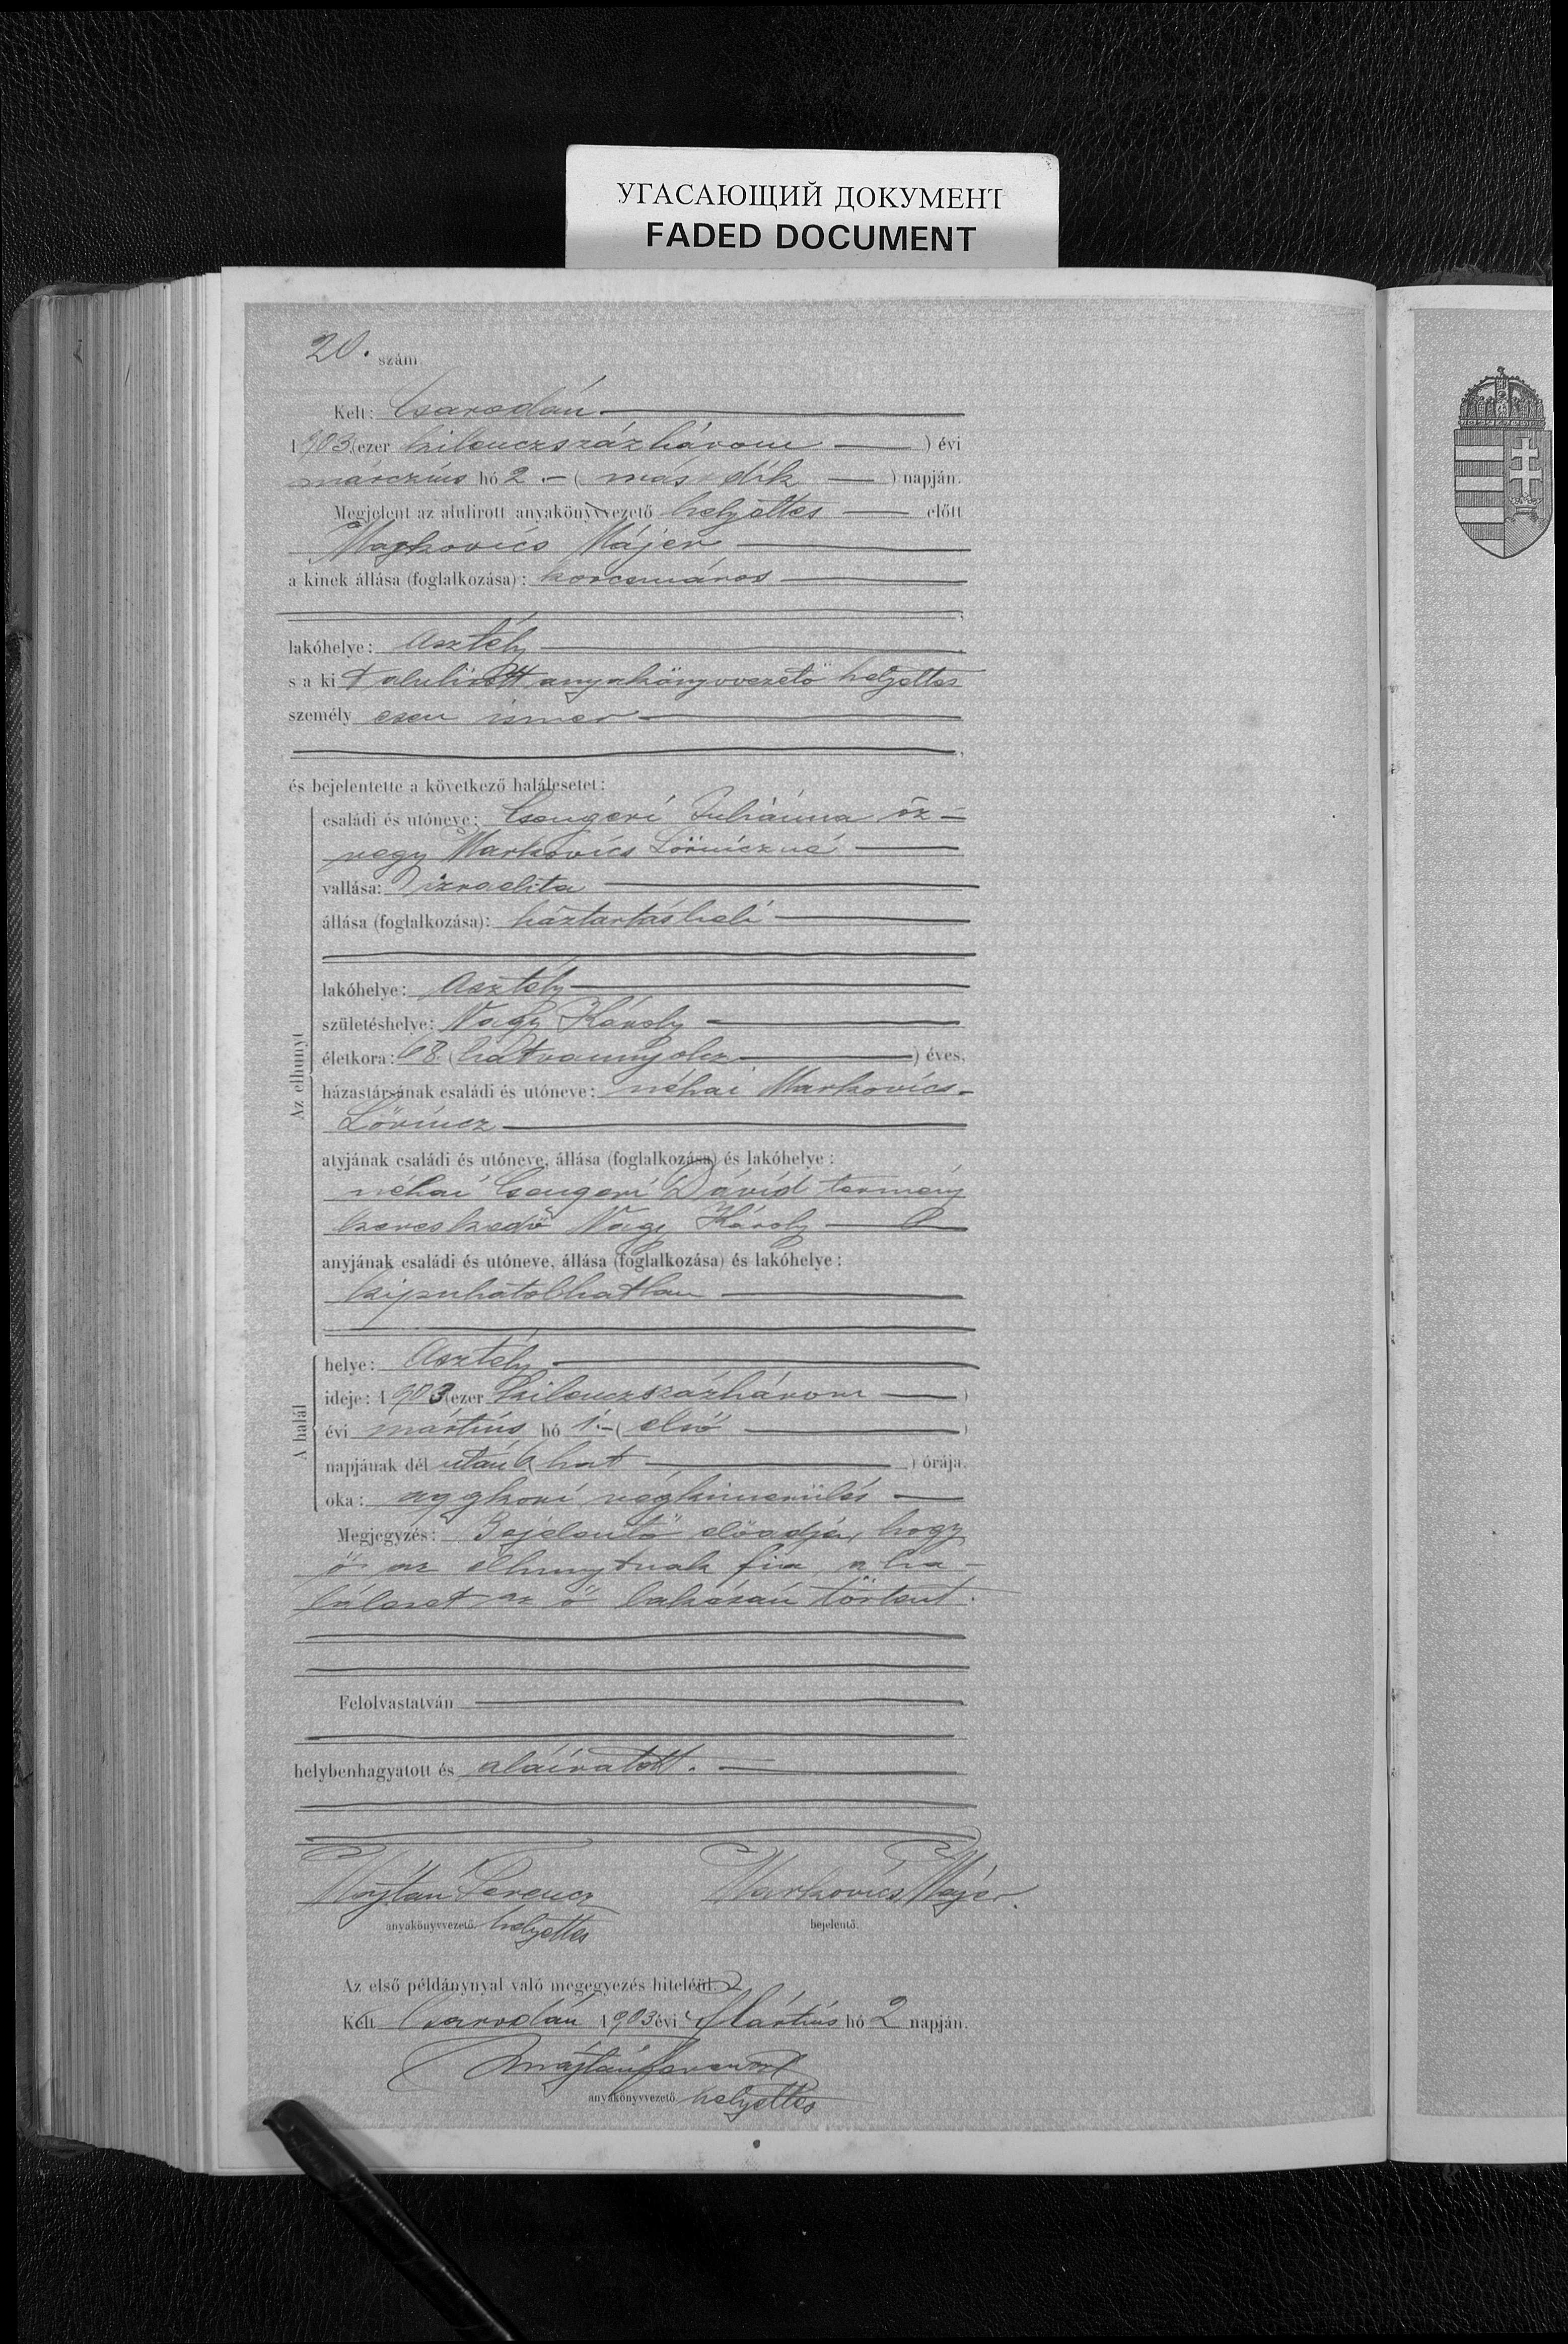 УГАСАЮЩИЙ ДОКУМЕНТ
FADED DOCUMENT
20. szám.
Kelt: Csarodán
1903 (ezer kilenczszázhárom ) évi
márczius hó 2.- ( második ) napján.
Megjelent az alulirott anyakönyvvezető helyettes előtt
Markovics Májer
a kinek állása (foglalkozása): korcsmáros
lakóhelye: Asztély
s a ki t alulirott anyakönyvvezető helyettes
személy esen ismer
és bejelentette a következő halálesetet:
Az elhunyt
családi és utóneve: Csengeri Juliánna öz-
vegy Markovics Lőrinczné
vallása: izraelita
állása (foglalkozása): háztartásbeli
lakóhelye: Asztély
születéshelye: Nagy Károly
életkora: 68 (hatvannyolcz ) éves,
házastársának családi és utóneve: néhai Markovics-
Lőrincz
atyjának családi és utóneve, állása (foglalkozása) és lakóhelye:
néhai Csengeri Dávid termény
kereskedő Nagy Károly
anyjának családi és utóneve, állása (foglalkozása) és lakóhelye:
kipuhatolhatlan
A halál
helye: Asztély
ideje: 1903 (ezer kilenczszázhárom )
évi mártius hó 1.- ( első )
napjának dél után 6 ( hat ) órája.
oka: aggkori végkimerülés
Megjegyzés: Bejelentő előadja, hogy
ő az elhunytnak fia, a ha-
láleset az ő lakásán történt.
Felolvastatván
helybenhagyatott és aláíratott.
Majtán Ferencz Markovics Májer.
anyakönyvvezető. helyettes bejelentő.
Az első példánynyal való megegyezés hiteléül.
Kelt Csarodán 1903 évi Mártius hó 2 napján.
Majtán Ferencz
anyakönyvvezető helyettes